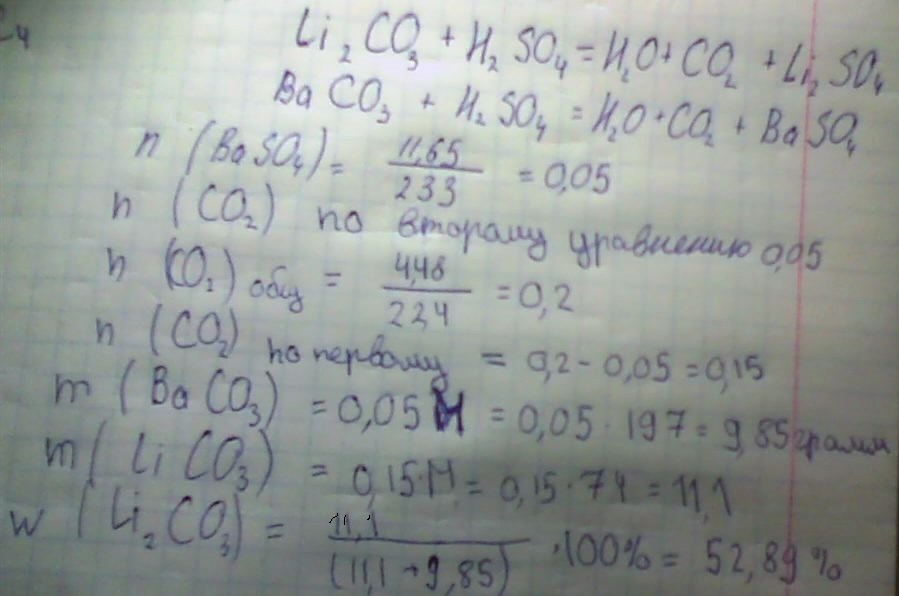 Li₂CO₃ + H₂SO₄ = H₂O + CO₂ + Li₂SO₄
BaCO₃ + H₂SO₄ = H₂O + CO₂ + BaSO₄
n (BaSO₄) = 11,65 / 233 = 0,05
n (CO₂) по второму уравнению 0,05
n (CO₂) общ = 4,48 / 22,4 = 0,2
n (CO₂) по первому = 0,2 - 0,05 = 0,15
m (BaCO₃) = 0,05 M = 0,05 · 197 = 9,85 грамм
m (LiCO₃) = 0,15·M = 0,15·74 = 11,1
w (Li₂CO₃) = 11,1 / (11,1 + 9,85) · 100% = 52,89 %